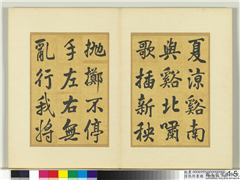 夏涼谿南
與谿北嘯
歌插新秧
拋擲不停
手左右無
亂行我將